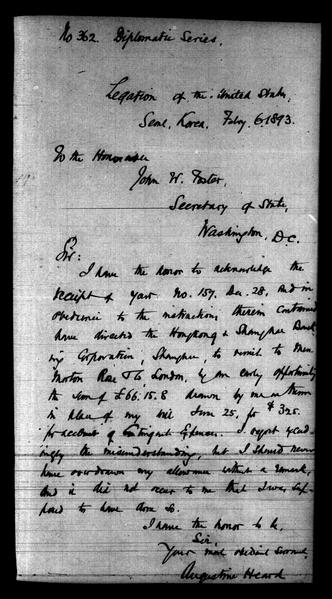 No 362. Diplomatic Series.
Legation of the United States,
Seoul, Korea, Feby. 6. 1893.
To the Honorable
John W. Foster,
Secretary of State,
Washington, D.C.
Sir:
I have the honor to acknowledge the
receipt of your No. 159. Dec. 28, and in
obedience to the instructions therein contained
have directed the Hongkong & Shanghai Bank
ing Corporation, Shanghai, to remit to Mess
Morton Rose & Co, London, by an early opportunity
the sum of £66.15.8 drawn by me on them
in place of my bill June 25, for $325.
for account of Contingent Expenses. I regret exceed
ingly the misunderstanding, but I should never
have overdrawn any allowance without a remark,
and it did not occur to me that I was sup
posed to have done so.
I have the honor to be,
Sir,
Your most obedient Servant,
Augustine Heard